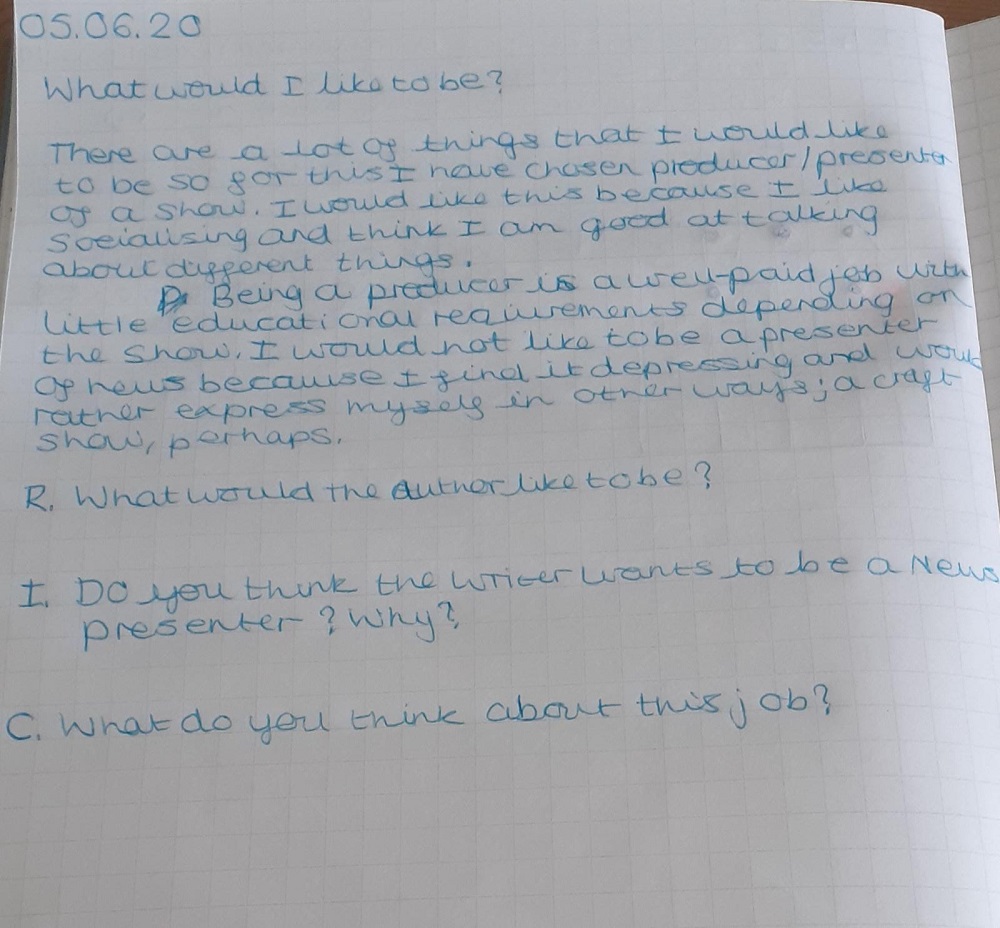 05.06.20
What would I like to be?
There are a lot of things that I would like
to be so for this I have chosen producer/presenter
of a show. I would like this because I like
socialising and think I am good at talking
about different things.
Being a producer is a well-paid job with
little educational requirements depending on
the show. I would not like to be a presenter
of news because I find it depressing and would
rather express myself in other ways; a craft
show, perhaps.
R. What would the author like to be?
I. Do you think the writer wants to be a News
presenter? Why?
C. What do you think about this job?